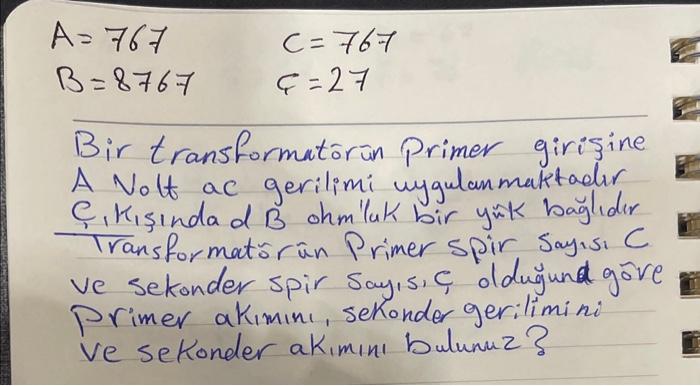 A = 767 C = 767
B = 8767 Ç = 27
Bir transformatörün Primer girişine
A Volt ac gerilimi uygulanmaktadır
Ç,kışında d B ohm'luk bir yük bağlıdır
Transformatörün Primer spir sayısı C
ve sekonder spir sayıs, Ç olduğund göre
primer akımını, sekonder gerilimini
ve sekonder akımını bulunuz?